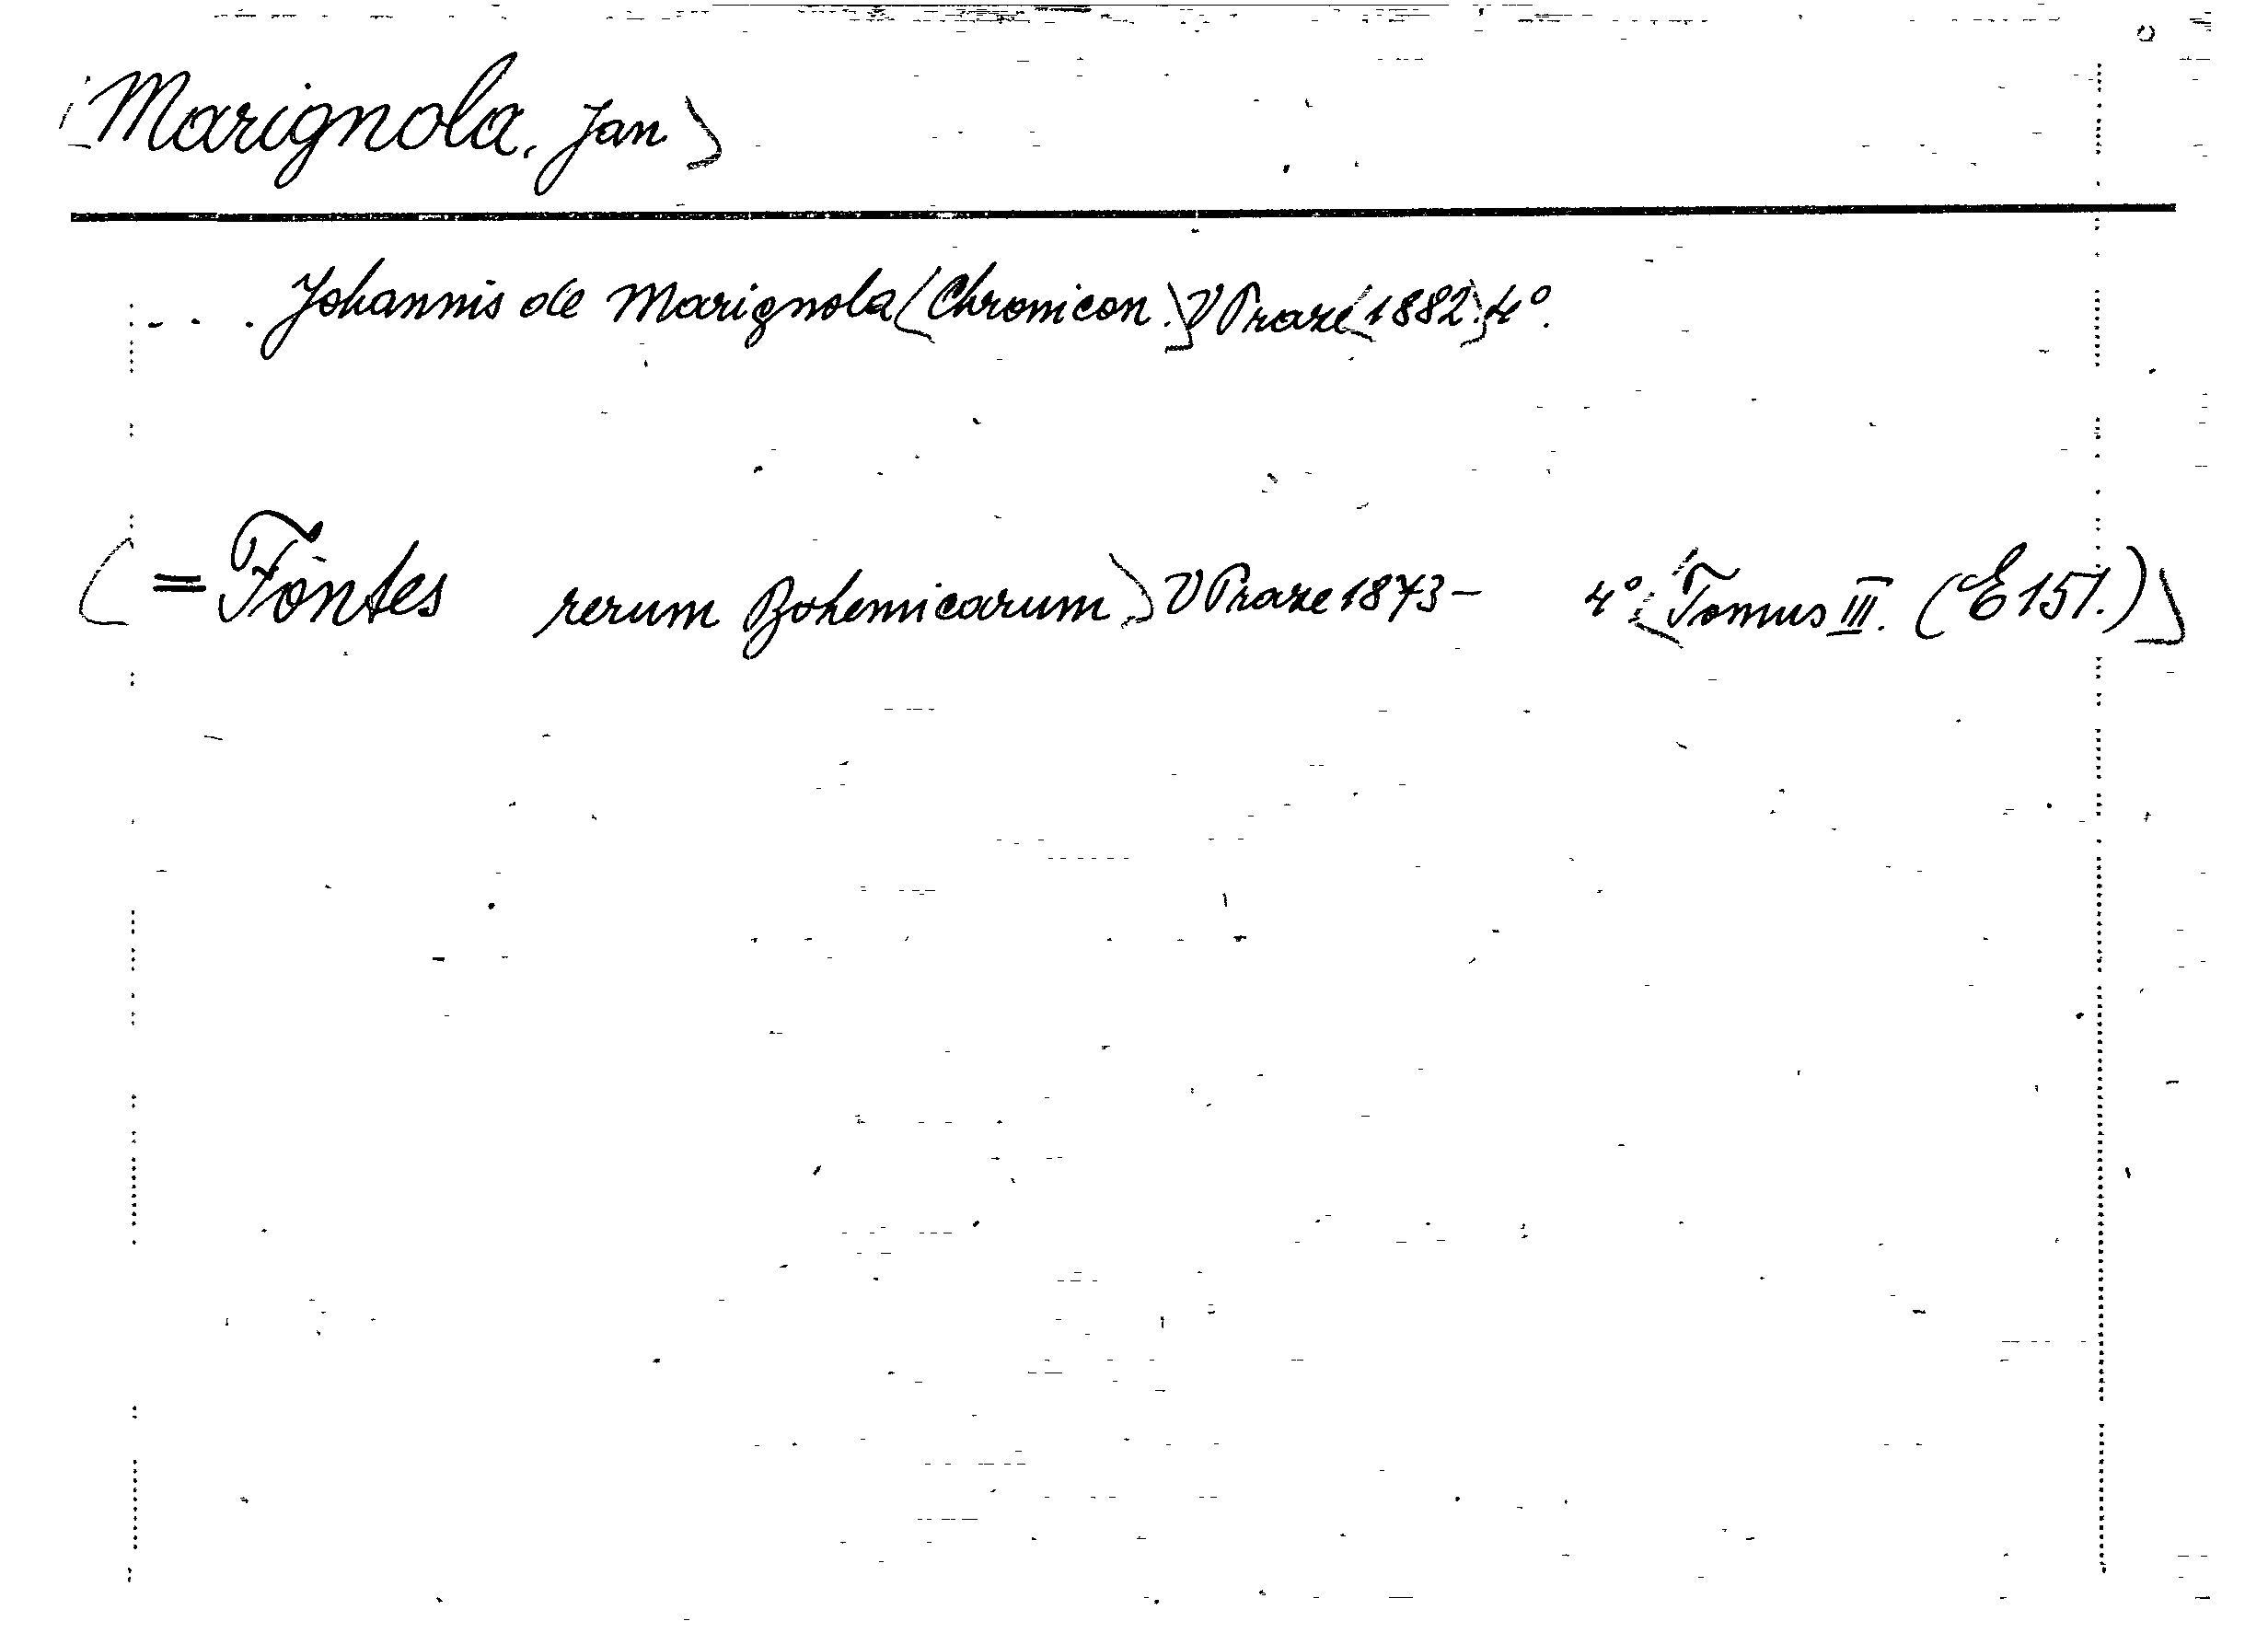 [Marignola, Jan]
... Johannis de Marignola [Chronicon.] V Praze [1882]. 4°.
[= Fontes rerum Bohemicarum] V Praze 1873- 4° [Tomus III. (E 151.)]